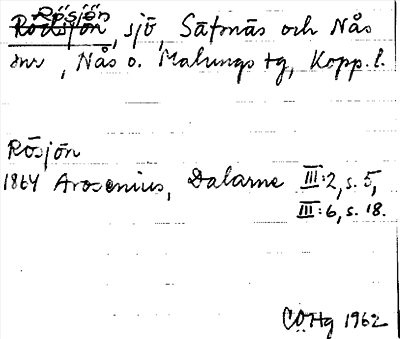 Rösjön
Rödsjön, sjö, Säfsnäs och Nås
snr, Nås o. Malungs tg, Kopp. l.
Rösjön
1864 Arosenius, Dalarne III:2, s. 5,
III:6, s. 18.
CÖHg 1962